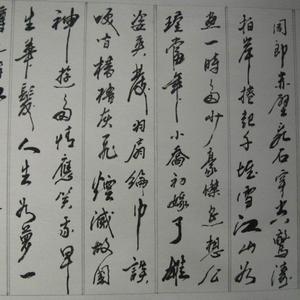 周郎赤壁亂石穿空驚濤
拍岸捲起千堆雪江山如
畫一時多少豪傑遙想公
瑾當年小喬初嫁了雄
姿英發羽扇綸巾談
笑间檣櫓灰飛煙滅故國
神遊多情應笑我早
生華髮人生如夢一